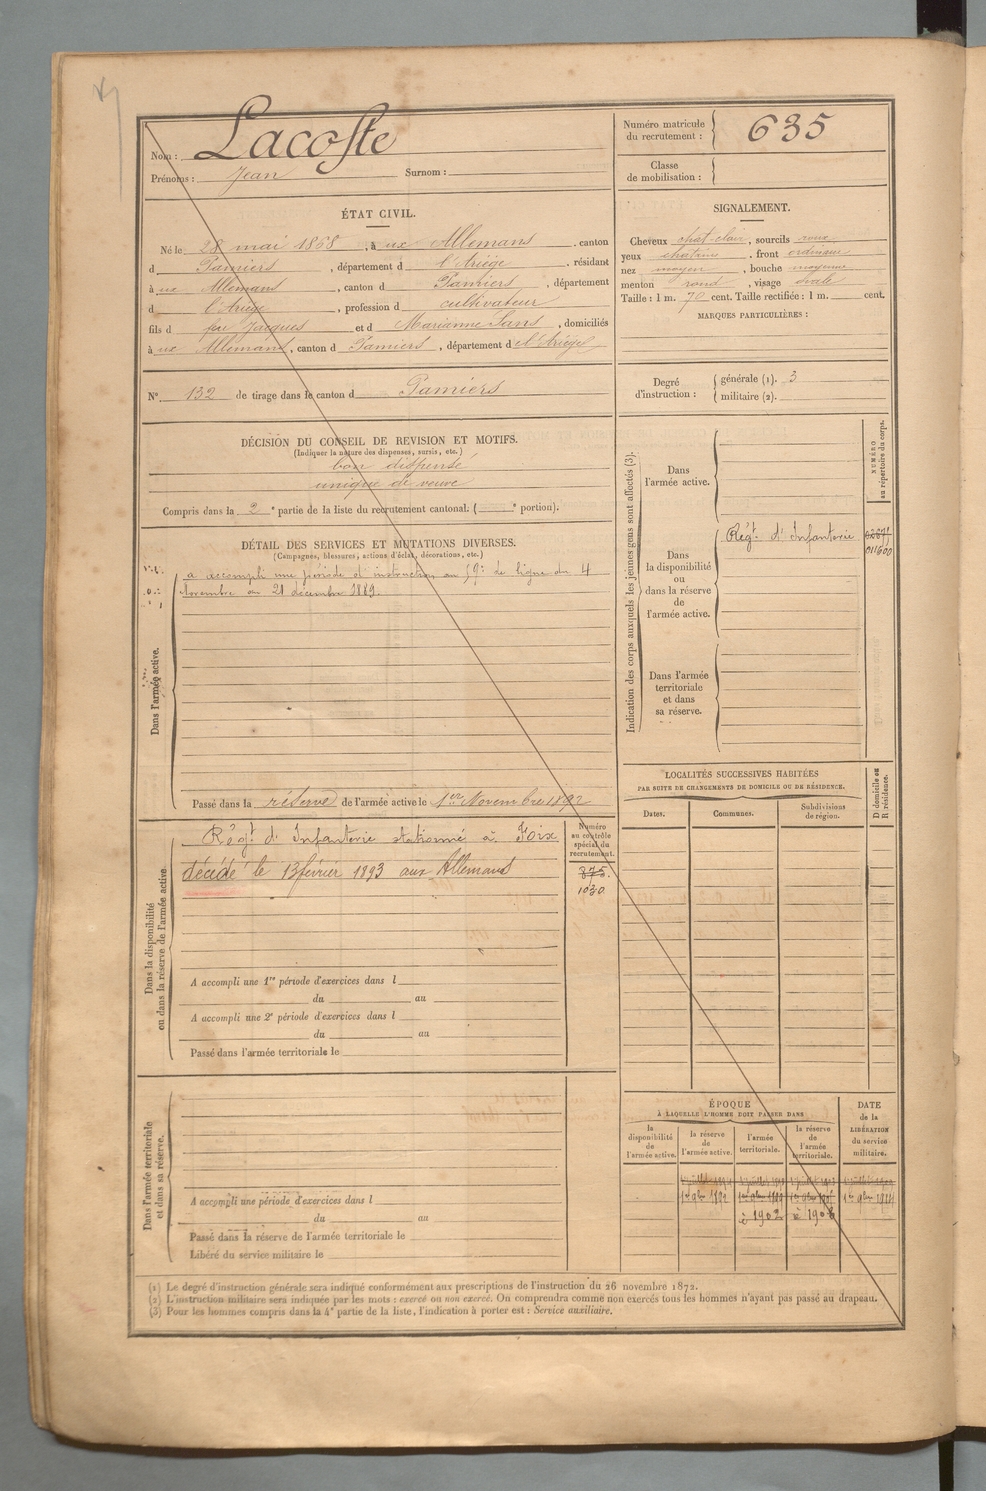 Nom : Lacoste
Prénoms : Jean Surnom :
Numéro matricule du recrutement : 635
Classe de mobilisation :
ÉTAT CIVIL.
Né le 28 mai 1868, à ux Allemans, canton
d Pamiers, département d l'Ariège, résidant
à ux Allemans, canton d Pamiers, département
d l'Ariège, profession d cultivateur
fils d feu Jacques et d Marianne Sans, domiciliés
à ux Allemans, canton d Pamiers, département d e l'Ariège
N° 132 de tirage dans le canton d Pamiers
SIGNALEMENT.
Cheveux chat-clair, sourcils roux
yeux chatains, front ordinaire
nez moyen, bouche moyenne
menton rond, visage ovale
Taille : 1 m. 70 cent. Taille rectifiée : 1 m. cent.
MARQUES PARTICULIÈRES :
Degré d'instruction : générale (1). 3
militaire (2).
DÉCISION DU CONSEIL DE REVISION ET MOTIFS.
(Indiquer la nature des dispenses, sursis, etc.)
bon dispensé
unique de veuve
Compris dans la 2e partie de la liste du recrutement cantonal. ( e portion).
DÉTAIL DES SERVICES ET MUTATIONS DIVERSES.
(Campagnes, blessures, actions d'éclat, décorations, etc.)
Dans l'armée active.
a accompli une période d'instruction au 59e de ligne du 4
Novembre au 21 décembre 1889.
Passé dans la réserve de l'armée active le 1er Novembre 1892
Dans la disponibilité
ou dans la réserve de l'armée active.
Régt d'Infanterie stationné à Foix
décédé le 13 février 1893 aux Allemans
Numéro au contrôle spécial du recrutement.
375.
1030
A accompli une 1re période d'exercices dans l
du au
A accompli une 2e période d'exercices dans l
du au
Passé dans l'armée territoriale le
Dans l'armée territoriale
et dans sa réserve.
A accompli une période d'exercices dans l
du au
Passé dans la réserve de l'armée territoriale le
Libéré du service militaire le
Indication des corps auxquels les jeunes gens sont affectés (3).
NUMÉRO
au répertoire du corps.
Dans
l'armée active.
Dans
la disponibilité
ou
dans la réserve
de
l'armée active.
Régt d'Infanterie
011600
Dans l'armée
territoriale
et dans
sa réserve.
LOCALITÉS SUCCESSIVES HABITÉES
PAR SUITE DE CHANGEMENTS DE DOMICILE OU DE RÉSIDENCE.
Dates. Communes. Subdivisions de région.
D domicile ou
R résidence.
ÉPOQUE
À LAQUELLE L'HOMME DOIT PASSER DANS
la disponibilité de l'armée active.
la réserve de l'armée active.
l'armée territoriale.
la réserve de l'armée territoriale.
DATE de la LIBÉRATION du service militaire.
1er 9bre 1892
(1) Le degré d'instruction générale sera indiqué conformément aux prescriptions de l'instruction du 26 novembre 1872.
(2) L'instruction militaire sera indiquée par les mots : exercé ou non exercé. On comprendra comme non exercés tous les hommes n'ayant pas passé au drapeau.
(3) Pour les hommes compris dans la 4e partie de la liste, l'indication à porter est : Service auxiliaire.